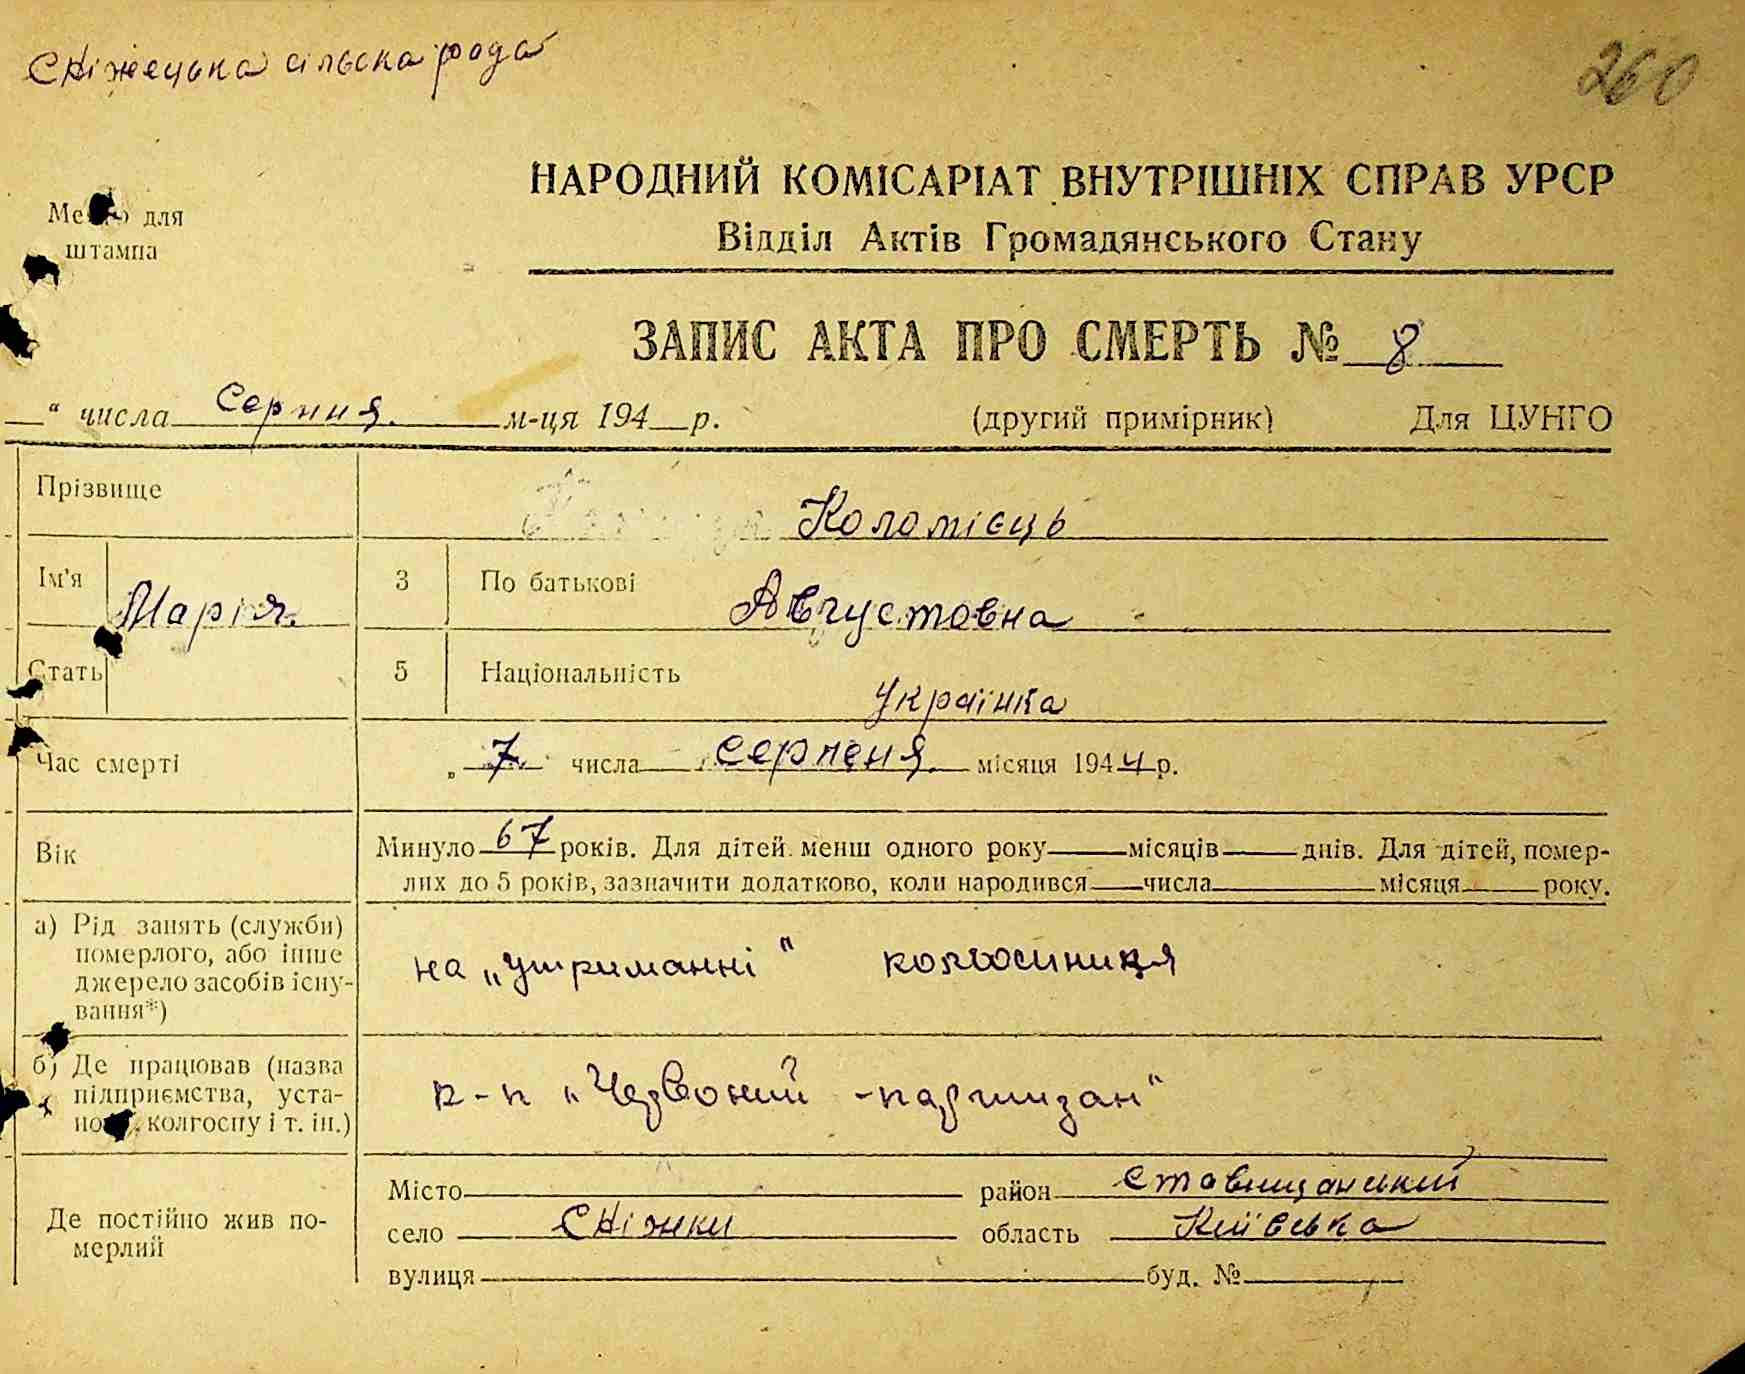 Сніжецька сільска рада
260
НАРОДНИЙ КОМІСАРІАТ ВНУТРІШНІХ СПРАВ УРСР
Відділ Актів Громадянського Стану
для
штампа
ЗАПИС АКТА ПРО СМЕРТЬ № 8
“ числа Серпня м-ця 194 р. (другий примірник) Для ЦУНГО
Прізвище Коломієць
Ім'я Марія 3 По батькові Августовна
Стать 5 Національність Українка
Час смерті „ 7 числа серпеня місяця 1944 р.
Вік Минуло 67 років. Для дітей менш одного року місяців днів. Для дітей, помер-
лих до 5 років, зазначити додатково, коли народився числа місяця року.
а) Рід занять (служби)
померлого, або інше
джерело засобів існу-
вання*)
на „утриманні“ колгоспниця
б) Де працював (назва
підприємства, уста-
колгоспу і т. ін.)
к-п „Червоний -партизан“
Де постійно жив по-
мерлий
Місто район Ставищанський
село Сніжки область Київська
вулиця буд. №